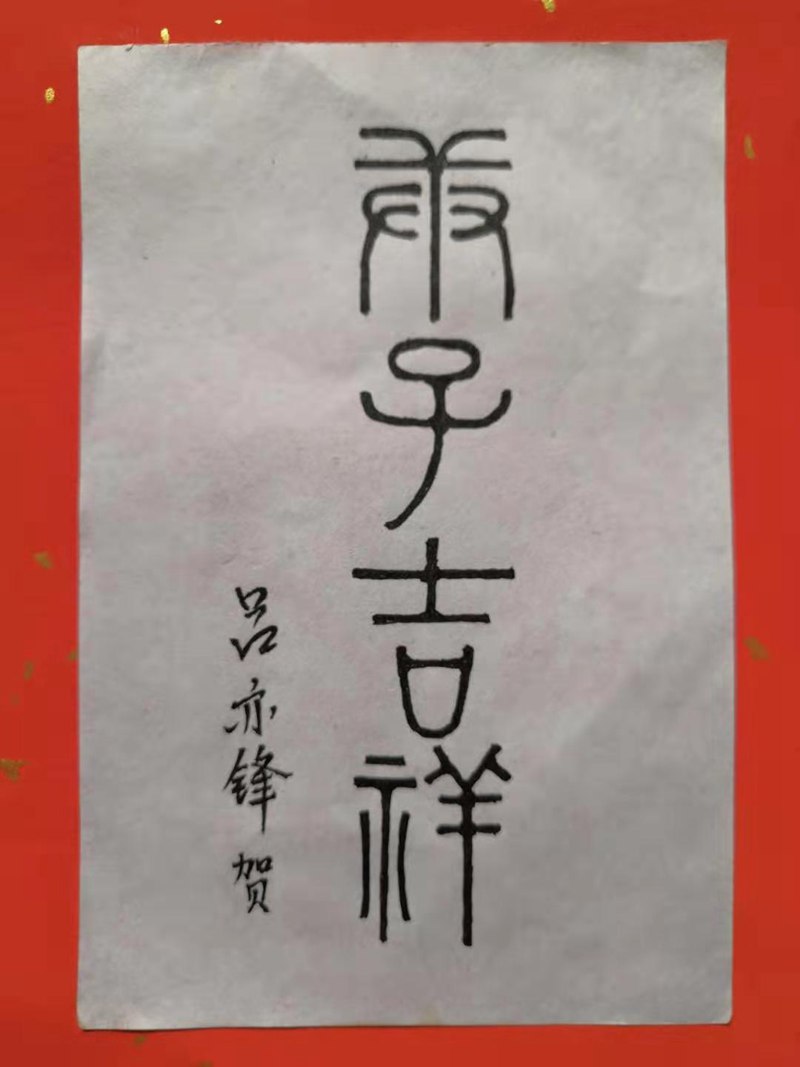 庚子吉祥
吕亦锋贺